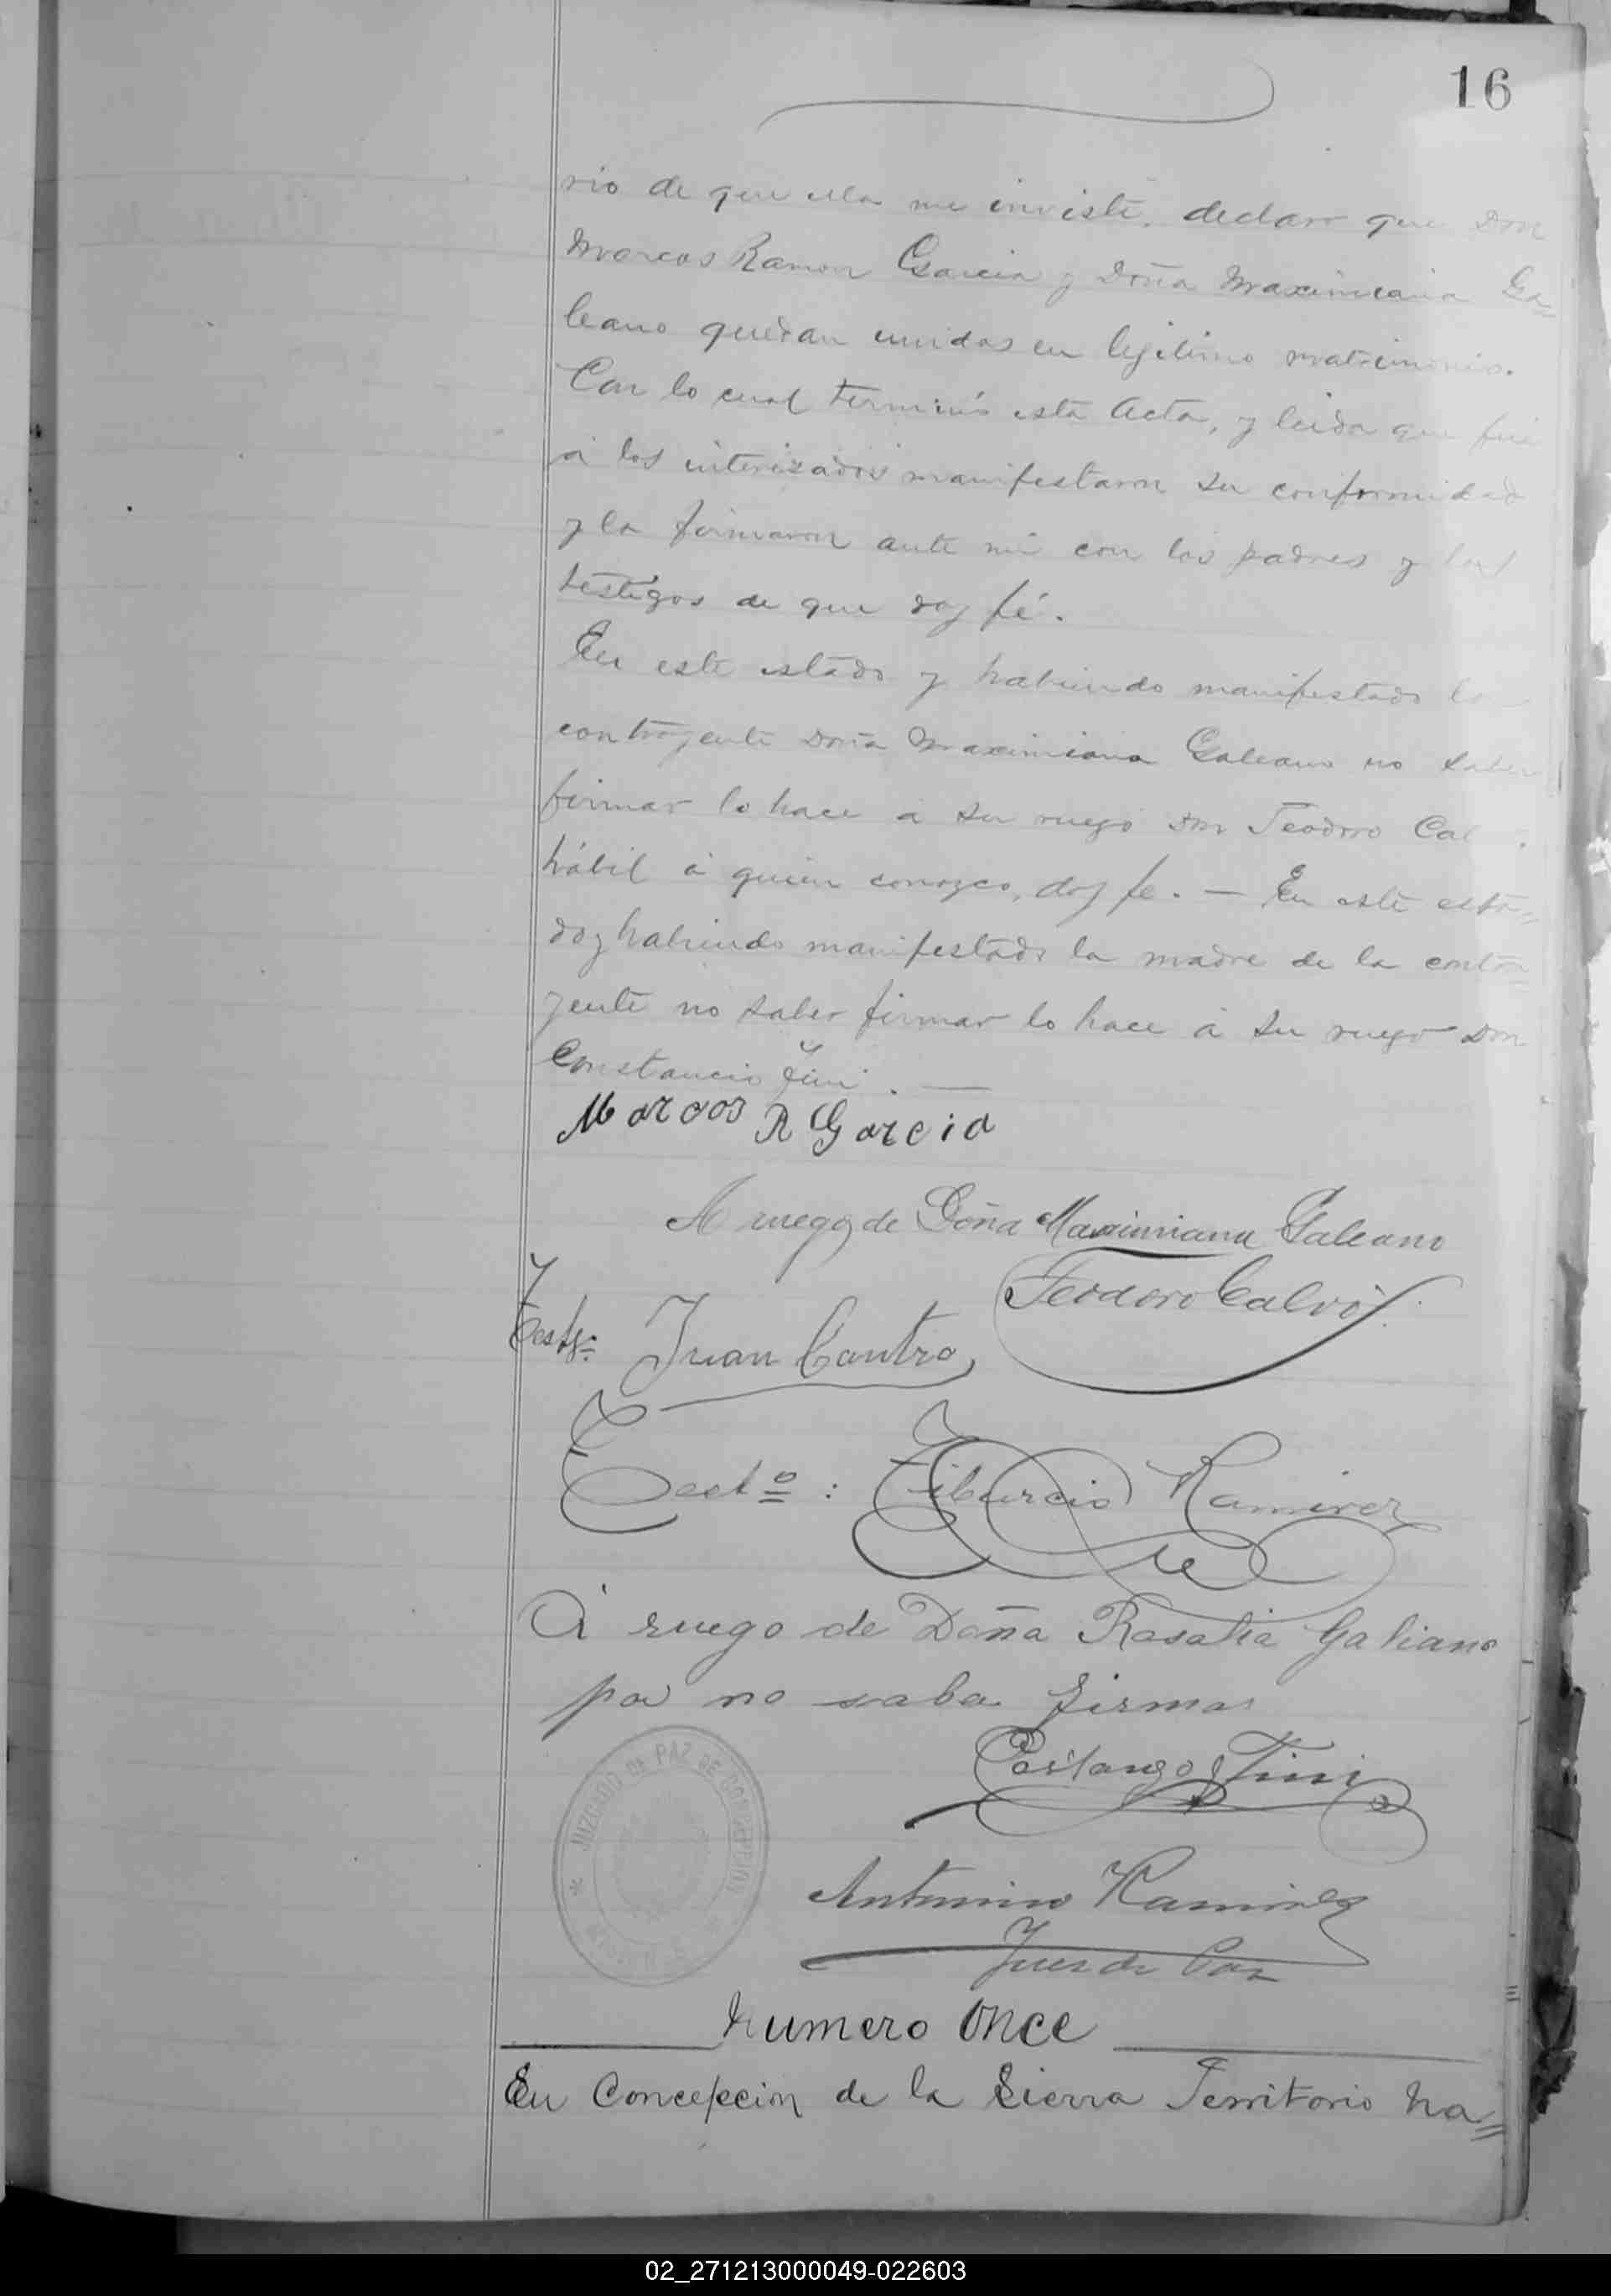 16
rio de que ella me inviste, declaro que Don
Marcos Ramon Garcia y Doña Maximiana Ga=
leano quedan unidos en legitimo matrimonio.
Con lo cual terminó esta Acta, y leida que fué
á los interezados manifestaron su conformidad
y la firmaron ante mi con los padres y los
testigos de que doy fé.
En este estado y habiendo manifestado la
contrayente Doña Maximiana Galeano no saber
firmar lo hace á su ruego Don Teodoro Cal
hábil á quien conozco, doy fe. — En este esta=
do y habiendo manifestado la madre de la contra=
yente no saber firmar lo hace á su ruego Don
Constancio Fini. —
Marcos R Garcia
A ruego de Doña Maximiana Galeano
Teodoro Calvo
Testgo: Juan Cantro
Testo: Tiburcio Ramirez
A ruego de Doña Rosalia Galiano
por no saber firmar
Costanzo Fini
JUZGADO DE PAZ DE CONCEPCION
Antonino Ramirez
Juez de Paz
Numero Once
En Concepcion de la Sierra Territorio Na=
02_271213000049-022603